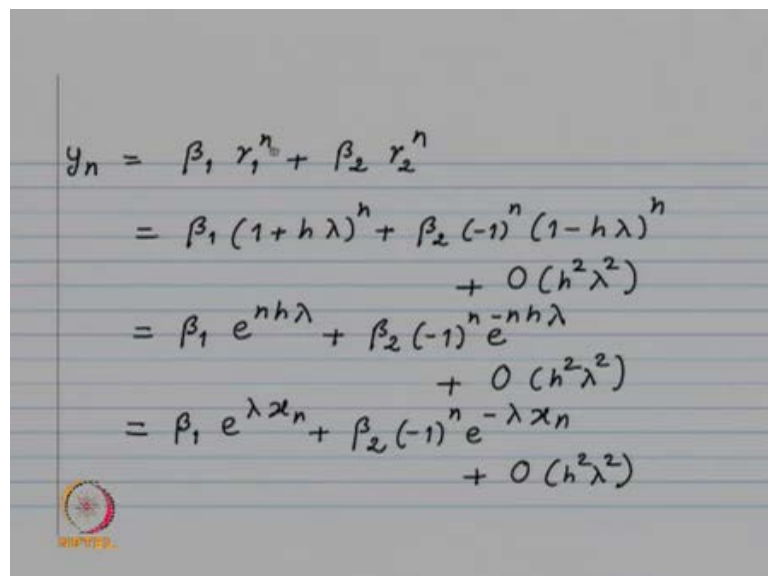 yₙ = β₁ r₁ⁿ + β₂ r₂ⁿ
= β₁ (1 + h λ)ⁿ + β₂ (-1)ⁿ (1 - h λ)ⁿ
+ O (h²λ²)
= β₁ e^{nhλ} + β₂ (-1)ⁿ e^{-nhλ}
+ O (h²λ²)
= β₁ e^{λxₙ} + β₂ (-1)ⁿ e^{-λxₙ}
+ O (h²λ²)
NPTEL